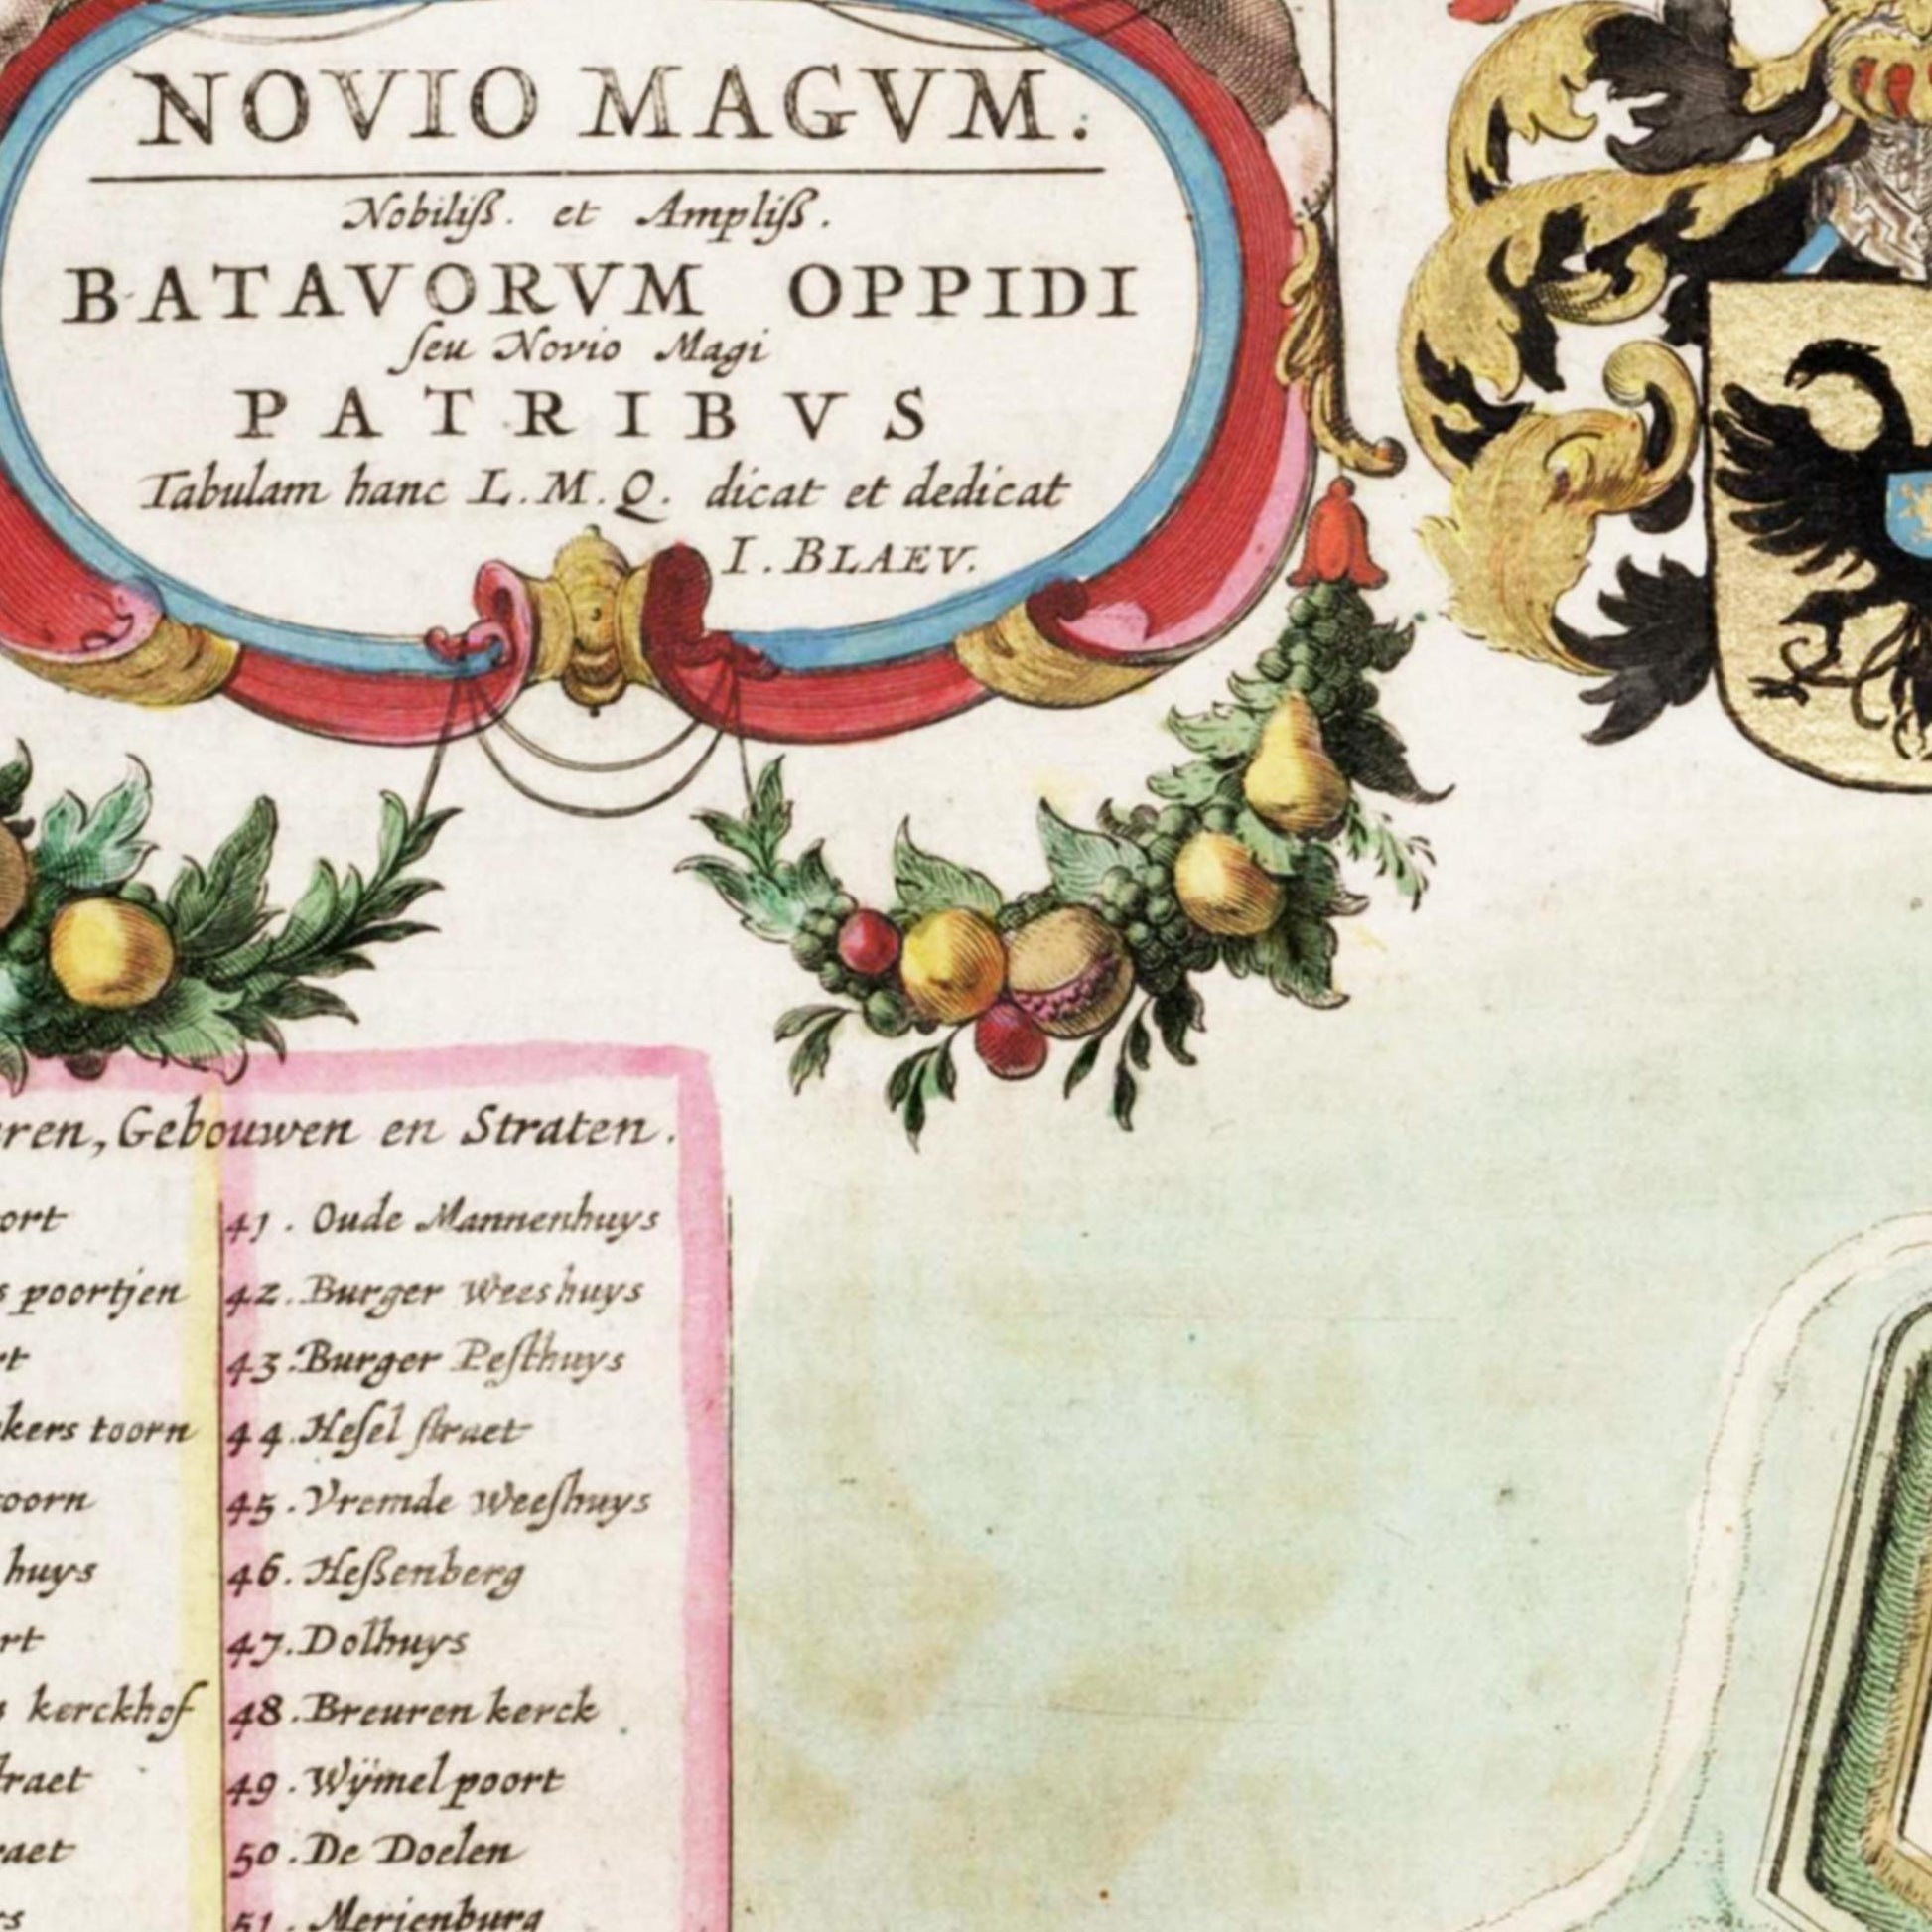 NOVIO MAGVM.
Nobiliß. et Ampliß.
BATAVORVM OPPIDI
ſeu Novio Magi
PATRIBVS
Tabulam hanc L.M.Q. dicat et dedicat
I. BLAEV.
ren, Gebouwen en Straten.
ort
s poortjen
rt
kers toorn
oorn
huys
rt
kerckhof
traet
raet
rs
41. Oude Mannenhuys
42. Burger Weeshuys
43. Burger Peſthuys
44. Heſel ſtraet
45. Vremde Weeſhuys
46. Heßenberg
47. Dolhuys
48. Breuren kerck
49. Wÿmel poort
50. De Doelen
51. Merienburg